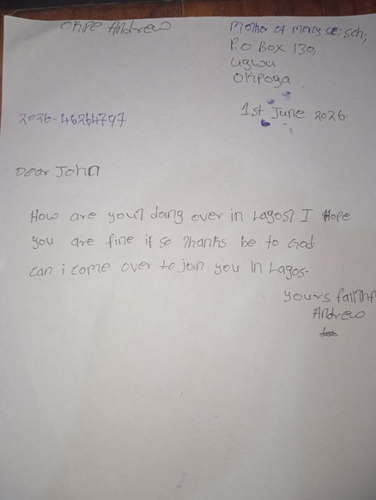 Okpe Andrew
Mother of Mercy se: sch,
P.O Box 130,
ugwu
Okpoga
2026-46264797
1st June 2026.
Dear John
How are you? doing over in Lagos? I Hope
you are fine if so thanks be to God.
Can i come over to join you in Lagos.
yours faithf
Andrew